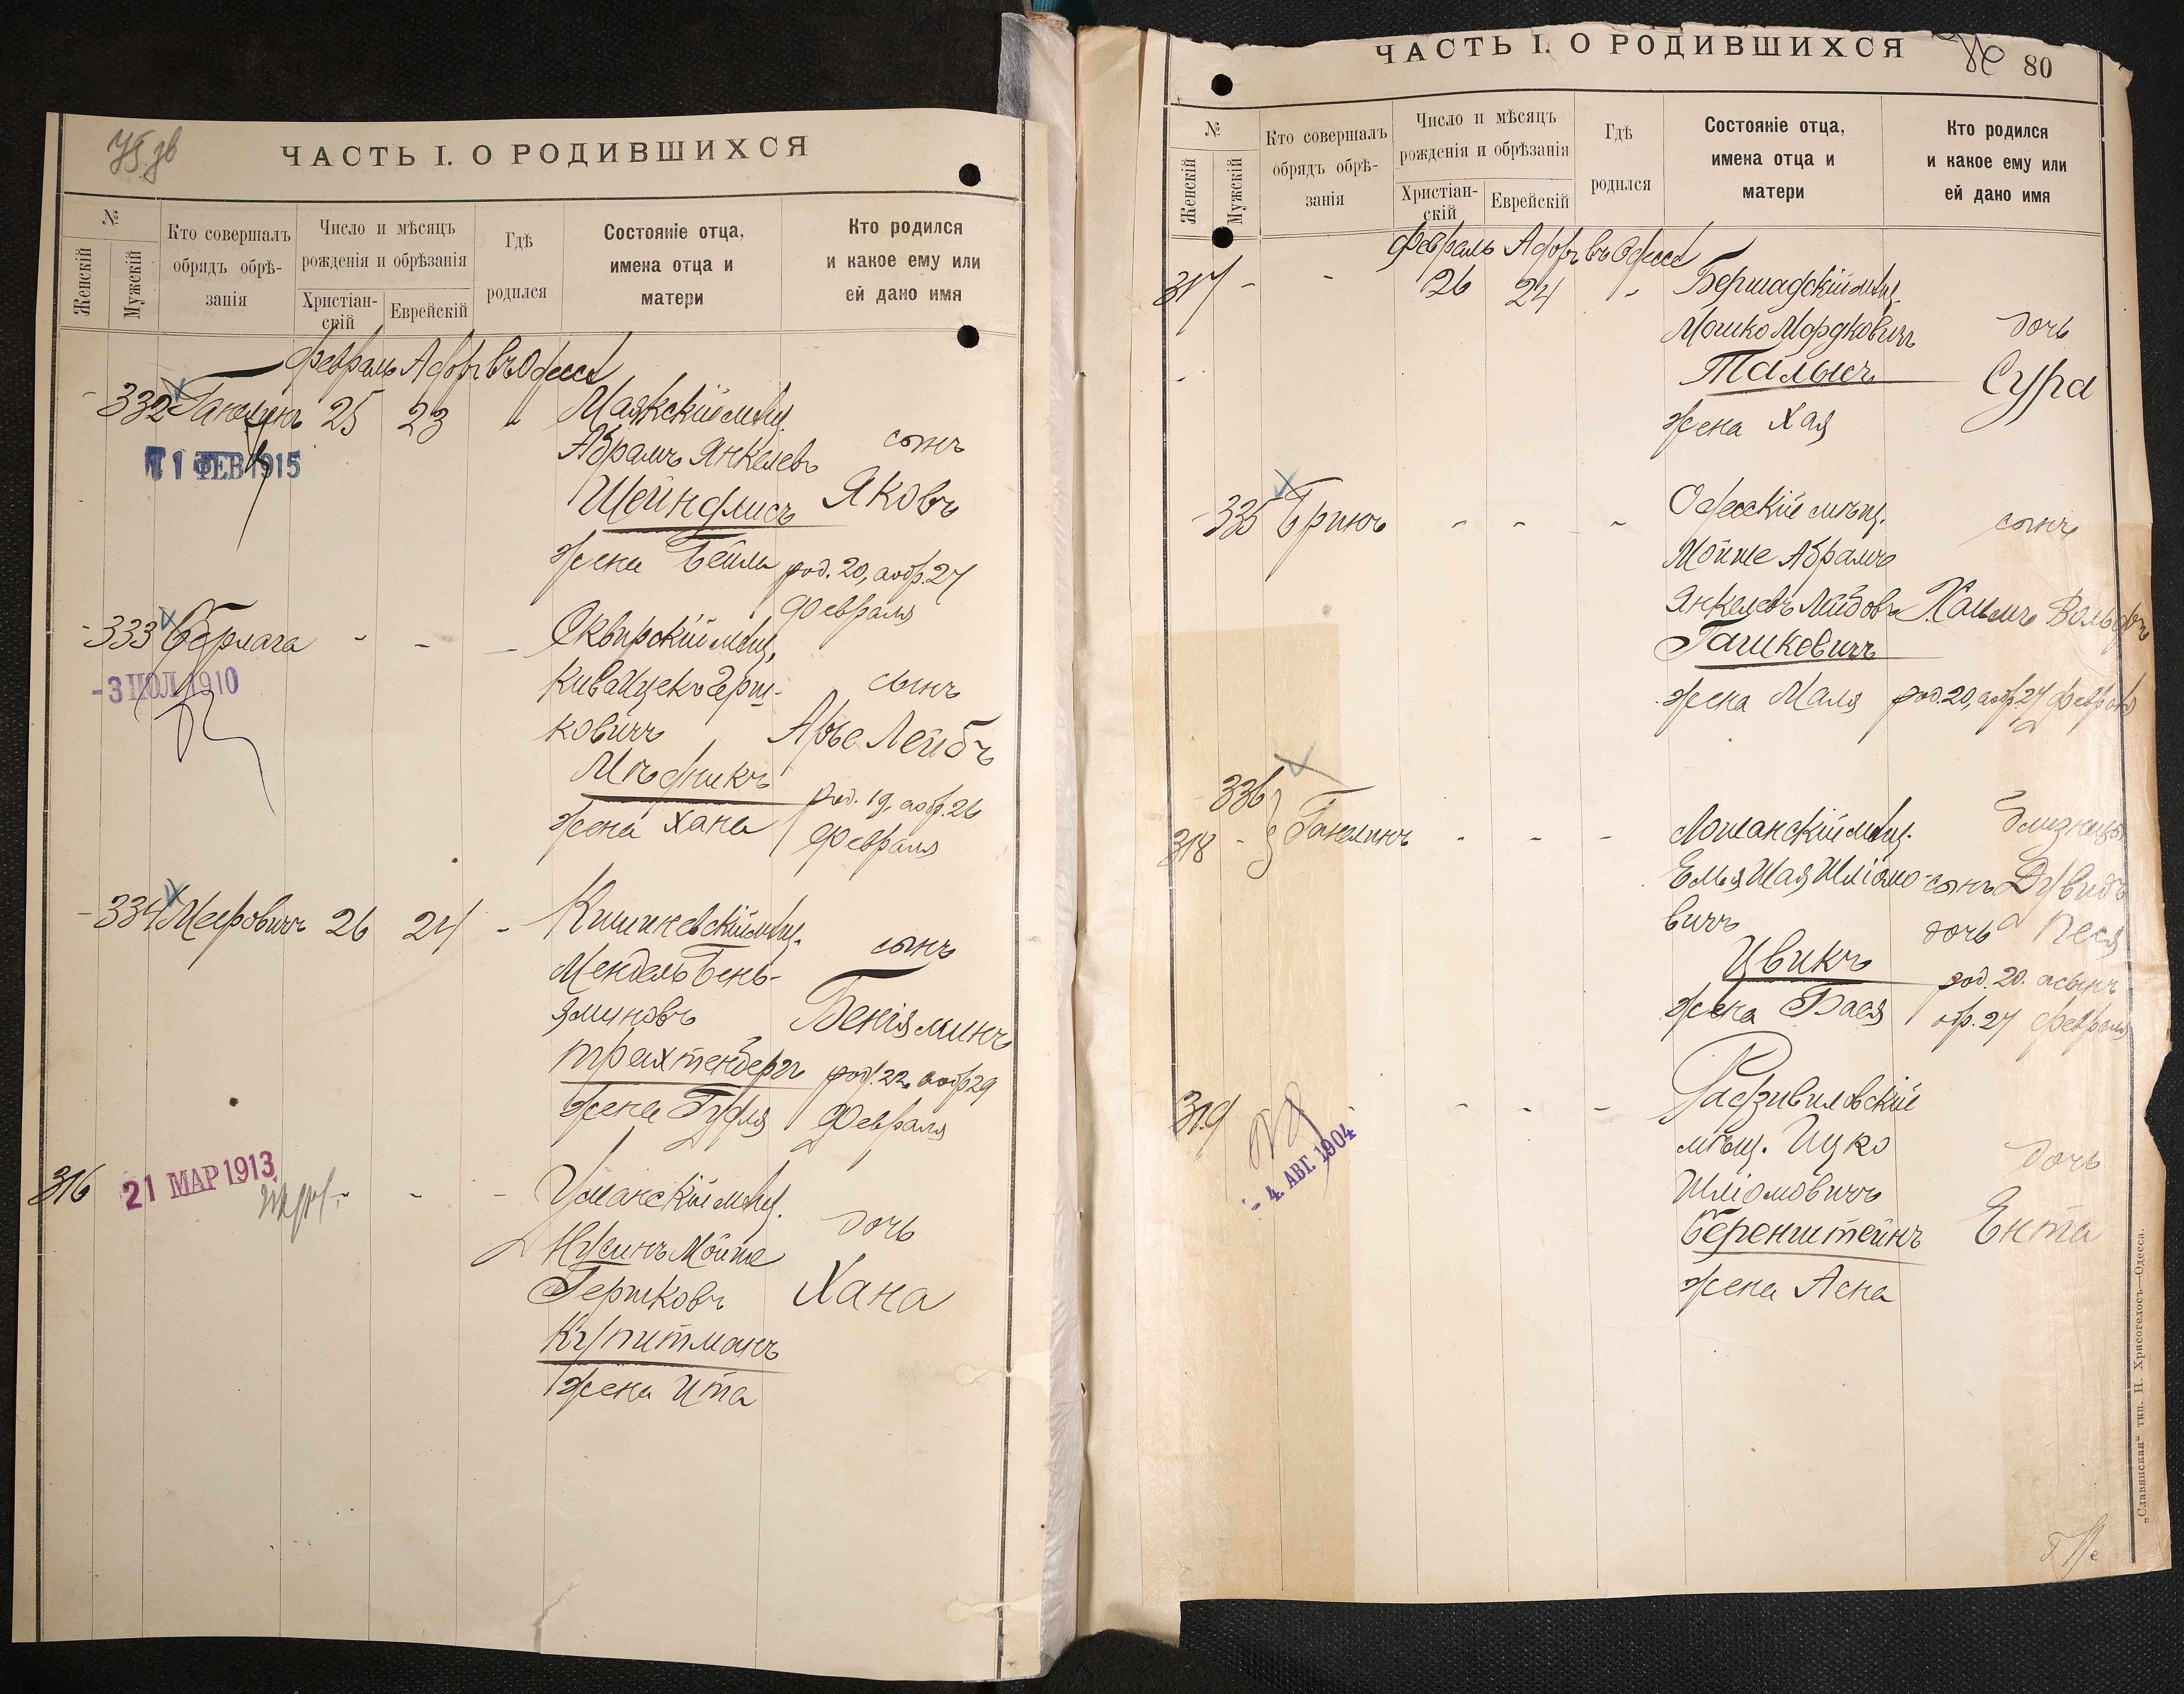 ЧАСТЬ I. О РОДИВШИХСЯ
№
Женскій
Мужскій
Кто совершалъ
обрядъ обрѣ-
занія
Число и мѣсяцъ
рожденія и обрѣзанія
Христіан-
скій
Еврейскій
Гдѣ
родился
Состояніе отца,
имена отца и
матери
Кто родился
и какое ему или
ей дано имя
Февраль Адаръ въ Одессѣ
332 25 23 Маякскій мѣщ.
Абрамъ Янкелевъ сынъ
Шейндлисъ Яковъ
жена Бейла род. 20, а обр. 27
Февраля
11 ФЕВ 1915
333 Берлага - - - Сквирскій мѣщ.
Кива Ицекъ Герш-
ковичъ сынъ
Арье Лейбъ
Мѣдникъ
жена Хана род. 19, а обр. 26
Февраля
-3 ІЮЛ 1910
334 Меировичъ 26 24 - Кишиневскій мѣщ.
Мендель Бень- сынъ
яминовъ Беніяминъ
Трахтенбергъ род. 22, а обр 29
жена Гудля Февраля
316 - - - Уманскій мѣщ.
Нусинъ Мойше дочь
Гершковъ Хана
Купитманъ
жена Ита
21 МАР 1913
ЧАСТЬ I. О РОДИВШИХСЯ
80
№
Женскій
Мужскій
Кто совершалъ
обрядъ обрѣ-
занія
Число и мѣсяцъ
рожденія и обрѣзанія
Христіан-
скій
Еврейскій
Гдѣ
родился
Состояніе отца,
имена отца и
матери
Кто родился
и какое ему или
ей дано имя
Февраль Адаръ въ Одессѣ
317 - - 26 24 - Бершадскій мѣщ.
Мошко Мордковичъ дочь
Талысъ Сура
жена Хая
335 - - - Одесскій мѣщ.
Мойше Абрамъ сынъ
Янкелевъ Лейбовъ Хаимъ Вольфъ
Гашкевичъ
жена Маля род. 20, а обр. 27 Февраля
336
318 - - - - близнецы
Елья Шая Шліомо- сынъ Дувидъ
вичъ дочь Песя
Цвикъ
жена Бася род. 20. а сынъ
обр. 27 Февраля
319 - - - Радзивиловскій
мѣщ. Ицко
Шліомовичъ дочь
Беренштейнъ Ента
жена Асна
- 4. АВГ. 1904
„Славянская“ тип. Н. Хрисогелосъ—Одесса.